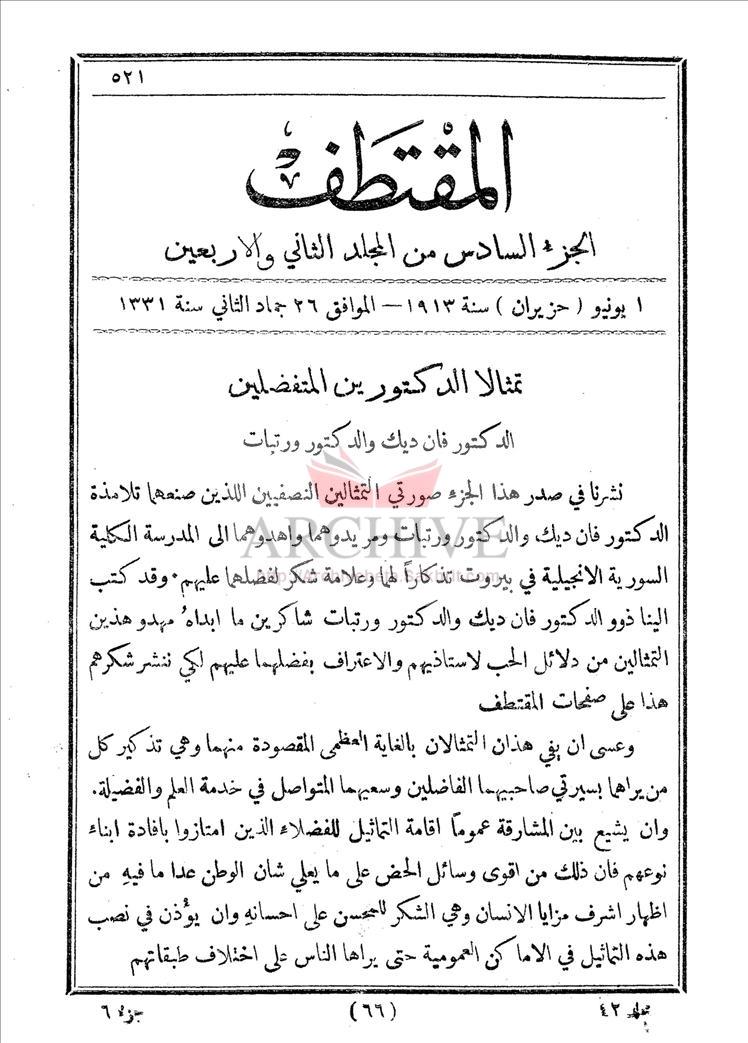 ٥٢١
المقتطف
الجزء السادس من المجلد الثاني والاربعين
١ يونيو ( حزيران ) سنة ١٩١٣ — الموافق ٢٦ جماد الثاني سنة ١٣٣١
تمثالا الدكتورين المتفضلين
الدكتور فان ديك والدكتور ورتبات
نشرنا في صدر هذا الجزء صورتي التمثالين النصفيين اللذين صنعهما تلامذة
الدكتور فان ديك والدكتور ورتبات ومريدوهما واهدوهما الى المدرسة الكلية
السورية الانجيلية في بيروت تذكاراً لهما وعلامة شكر لفضلهما عليهم · وقد كتب
الينا ذوو الدكتور فان ديك والدكتور ورتبات شاكرين ما ابداهُ مهدو هذين
التمثالين من دلائل الحب لاستاذيهم والاعتراف بفضلهما عليهم لكي ننشر شكرهم
هذا على صفحات المقتطف
وعسى ان يفي هذان التمثالان بالغاية العظمى المقصودة منهما وهي تذكير كل
من يراهما بسيرتي صاحبيهما الفاضلين وسعيهما المتواصل في خدمة العلم والفضيلة.
وان يشيع بين المشارقة عموماً اقامة التماثيل للفضلاء الذين امتازوا بافادة ابناء
نوعهم فان ذلك من اقوى وسائل الحض على ما يعلي شان الوطن عدا ما فيهِ من
اظهار اشرف مزايا الانسان وهي الشكر للمحسن على احسانهِ وان يؤذن في نصب
هذه التماثيل في الاماكن العمومية حتى يراها الناس على اختلاف طبقاتهم
مجلد ٤٢
(٦٦)
جزء ٦
ARCHIVE